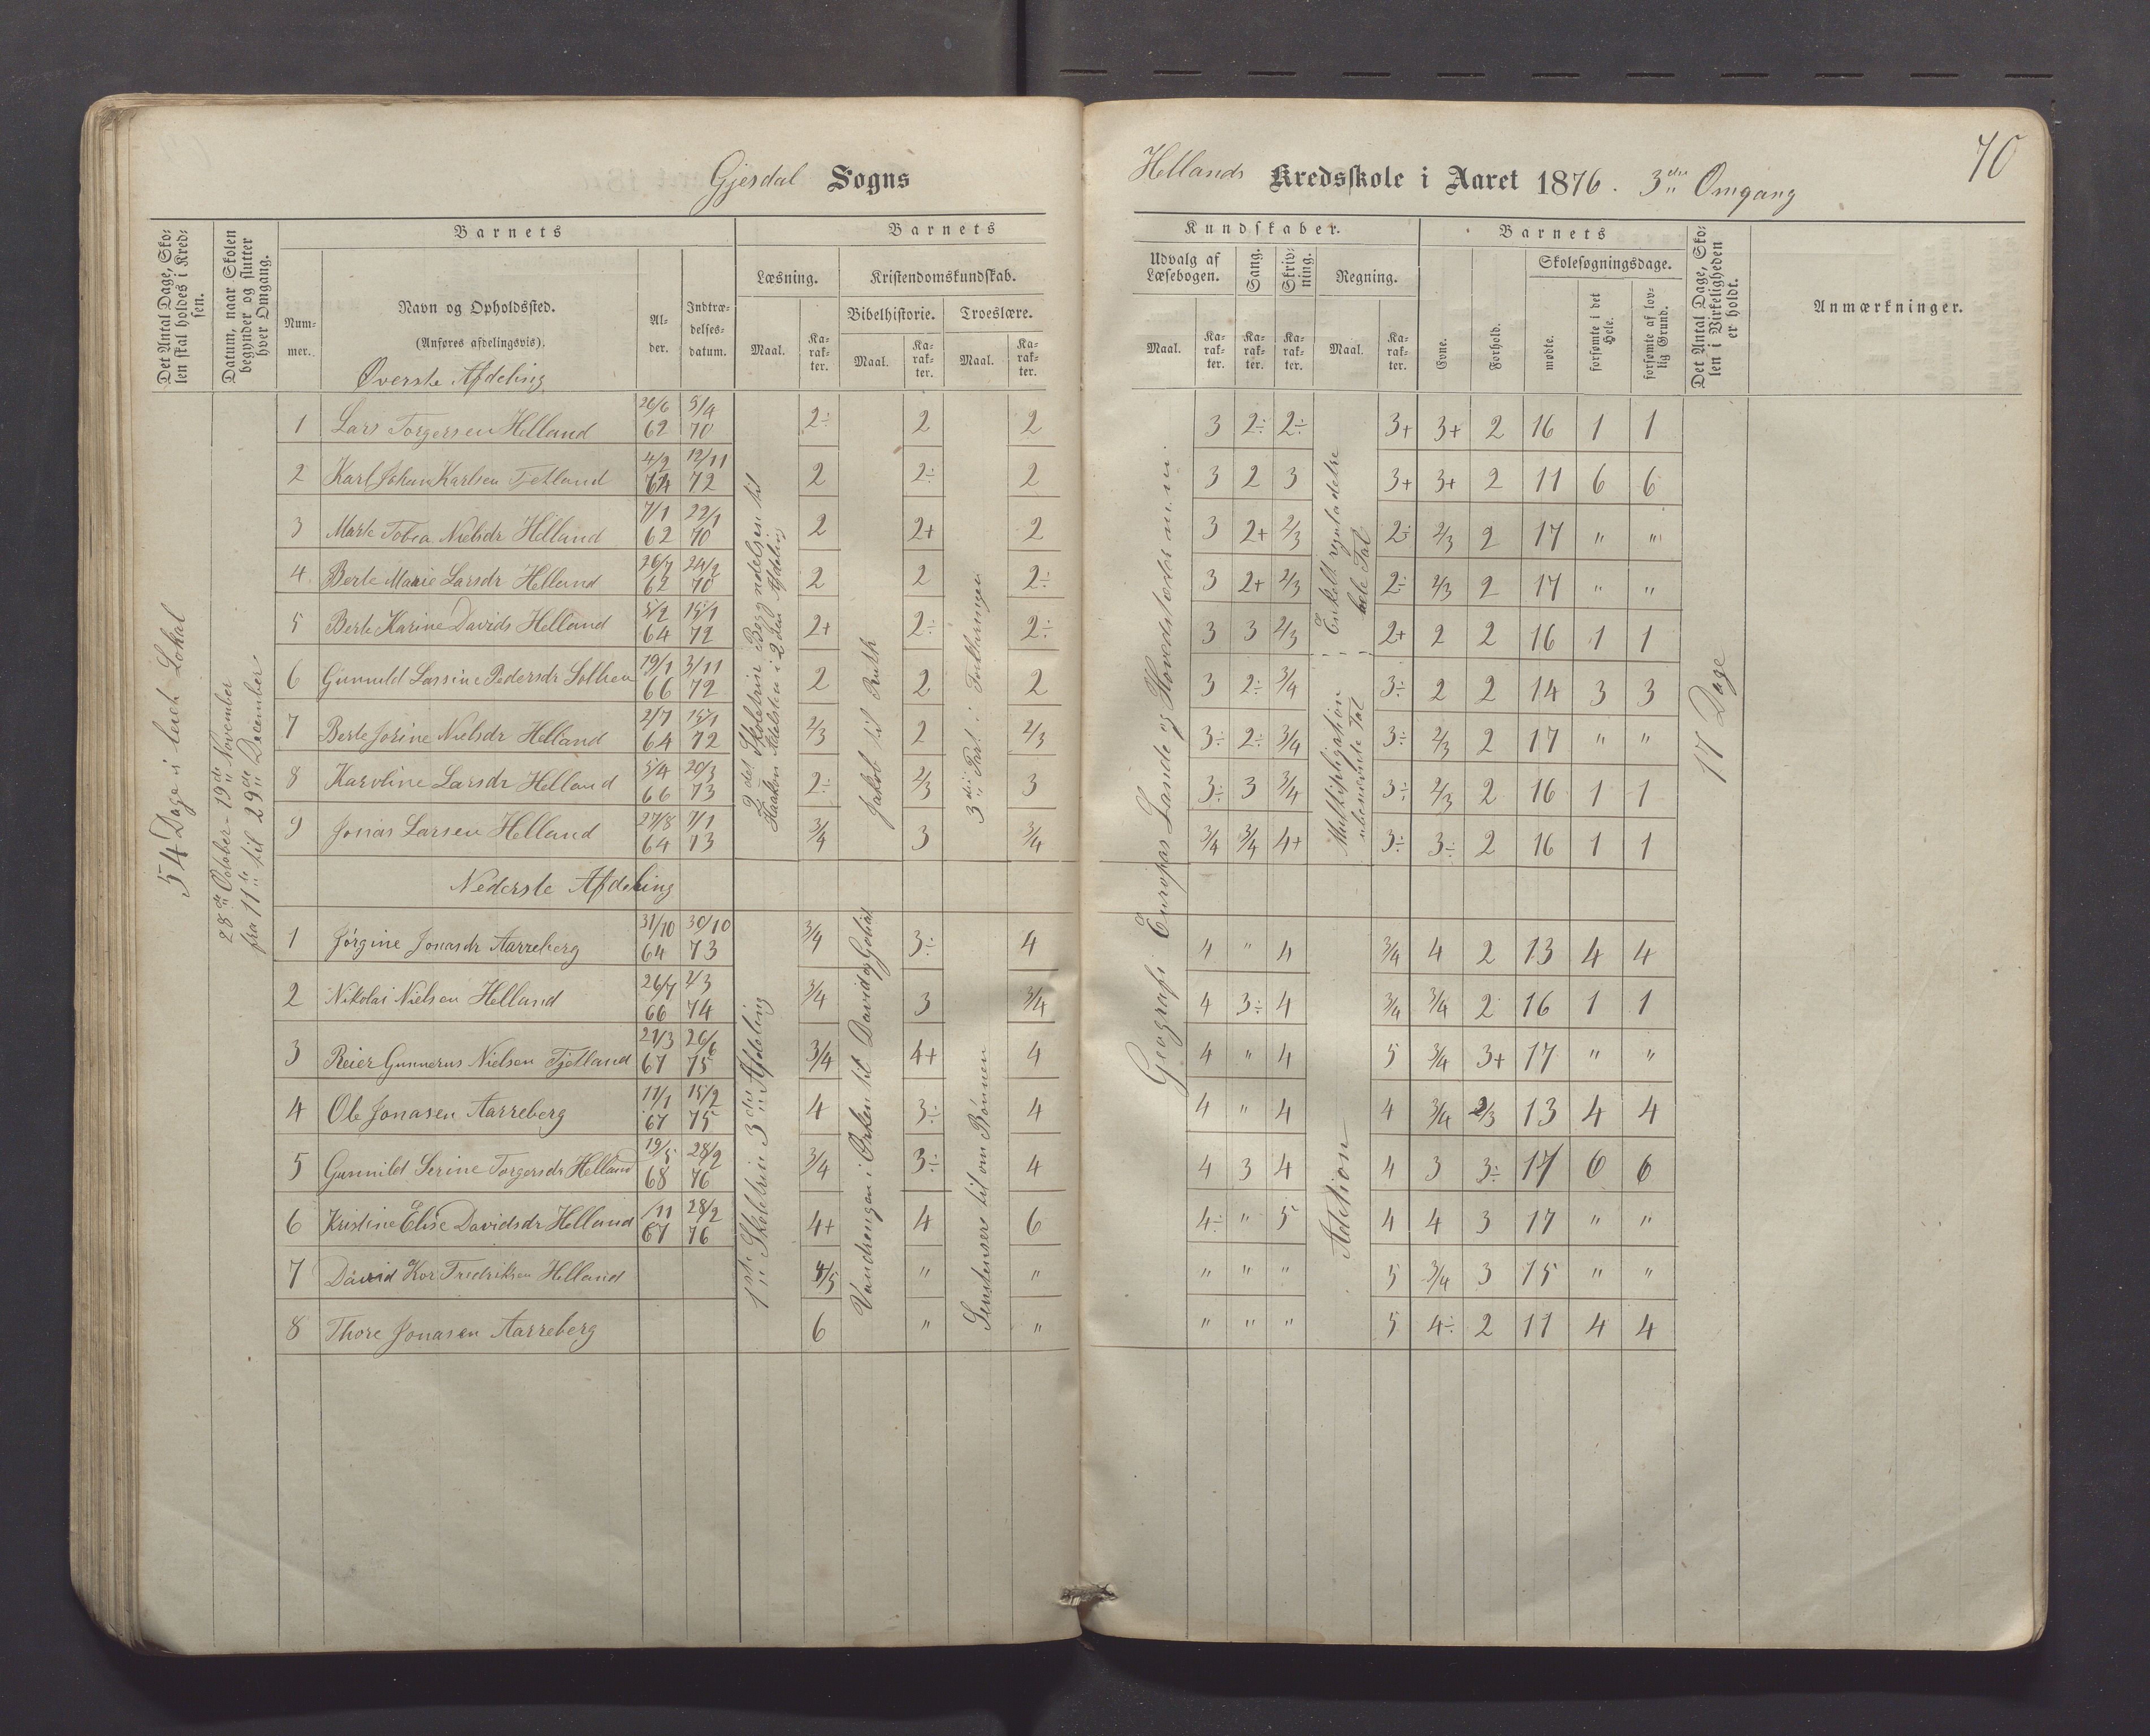 Gjesdal Sogns
Hellands Kredsskole i Aaret 1876. 3die Omgang
70
Det Antal Dage, Skolen skal holdes i Kredsen.
Datum, naar Skolen begynder og slutter hver Omgang.
Barnets
Nummer.
Navn og Opholdssted.
(Anføres afdelingsvis).
Alder.
Indtrædelsesdatum.
Barnets
Læsning.
Maal.
Karakter.
Kristendomskundskab.
Bibelhistorie.
Maal.
Karakter.
Troeslære.
Maal.
Karakter.
Kundskaber.
Udvalg af Læsebogen.
Maal.
Karakter.
Sang.
Karakter.
Skrivning.
Karakter.
Regning.
Maal.
Karakter.
Barnets
Evne.
Forhold.
Skolesøgningsdage.
mødte.
forsømte i det Hele.
forsømte af lovlig Grund.
Det Antal Dage, Skolen i Virkeligheden er holdt.
Anmærkninger.
54 Dage i leiet Lokal
28de October - 19de November
fra 11te til 29de December
Øverste Afdeling
1 Lars Torgersen Helland 26/6 62 5/4 70 2÷ 2 2 3 2÷ 2÷ 3+ 3+ 2 16 1 1
2 Karl Johan Karlsen Tjetland 4/2 64 12/11 72 2 2÷ 2 3 2 3 3+ 3+ 2 11 6 6
3 Marte Tobea Nielsdr Helland 7/1 62 22/1 70 2 2+ 2 3 2+ 2/3 2÷ 2/3 2 17 " "
4 Berte Marie Larsdr Helland 26/7 62 24/2 70 2 2 2÷ 3 2+ 2/3 2÷ 2/3 2 17 " "
5 Berte Karine Davids Helland 5/2 64 15/1 72 2+ 2÷ 2÷ 3 3 2/3 2+ 2 2 16 1 1
6 Gunnild Lassine Pedersdr 19/1 66 3/11 72 2 2 2 3 2÷ 3/4 3÷ 2 2 14 3 3
7 Berte Jorine Nielsdr Helland 2/7 64 15/1 72 2/3 2 2/3 3÷ 2÷ 3/4 3÷ 2/3 2 17 " "
8 Karoline Larsdr Helland 5/4 66 20/3 73 2÷ 2/3 3 3÷ 3 3/4 3÷ 2/3 2 16 1 1
9 Jonas Larsen Helland 27/8 64 7/1 73 3/4 3 3/4 3/4 3/4 4+ 3÷ 3÷ 2 16 1 1
2det Skoletrin Begyndelsen til
Haakon Adelsten i 2den Afdeling
Jakob til Ruth
3die Part i Forklaringen
Geografi Europas Lande og Hovedstæder m.m.
Enkelt reguladetri hele Tal
Multiplikation ubenævnte Tal
17 Dage
Nederste Afdeling
1 Jørgine Jonasdr Aarreberg 31/10 64 30/10 73 3/4 3÷ 4 4 " 4 3/4 4 2 13 4 4
2 Nikolai Nielsen Helland 26/7 66 2/3 74 3/4 3 3/4 4 3÷ 4 3/4 3/4 2 16 1 1
3 Reier Gunnerus Nielsen Tjetland 21/3 67 26/6 75 3/4 4+ 4 4 " 4 5 3/4 3+ 17 " "
4 Ole Jonasen Aarreberg 11/1 67 15/2 75 4 3÷ 4 4 " 4 4 3/4 2/3 13 4 4
5 Gunnild Serine Torgersdr Helland 19/5 68 28/2 76 3/4 3÷ 4 4 3 4 4 3 3÷ 17 0 6
6 Kristine Elise Davidsdr Helland /11 67 28/2 76 4+ 4 6 4÷ " 5 4 4 3 17 " "
7 David Kor Fredriksen Helland 4/5 " " " " " 5 3/4 3 15 " "
8 Thore Jonasen Aarreberg 6 " " " " " 5 4÷ 2 11 4 4
1ste Skoletrin 3die Afdeling
Vandrengen i Ørken til David og Goliat
til om Bønnen
Adetion